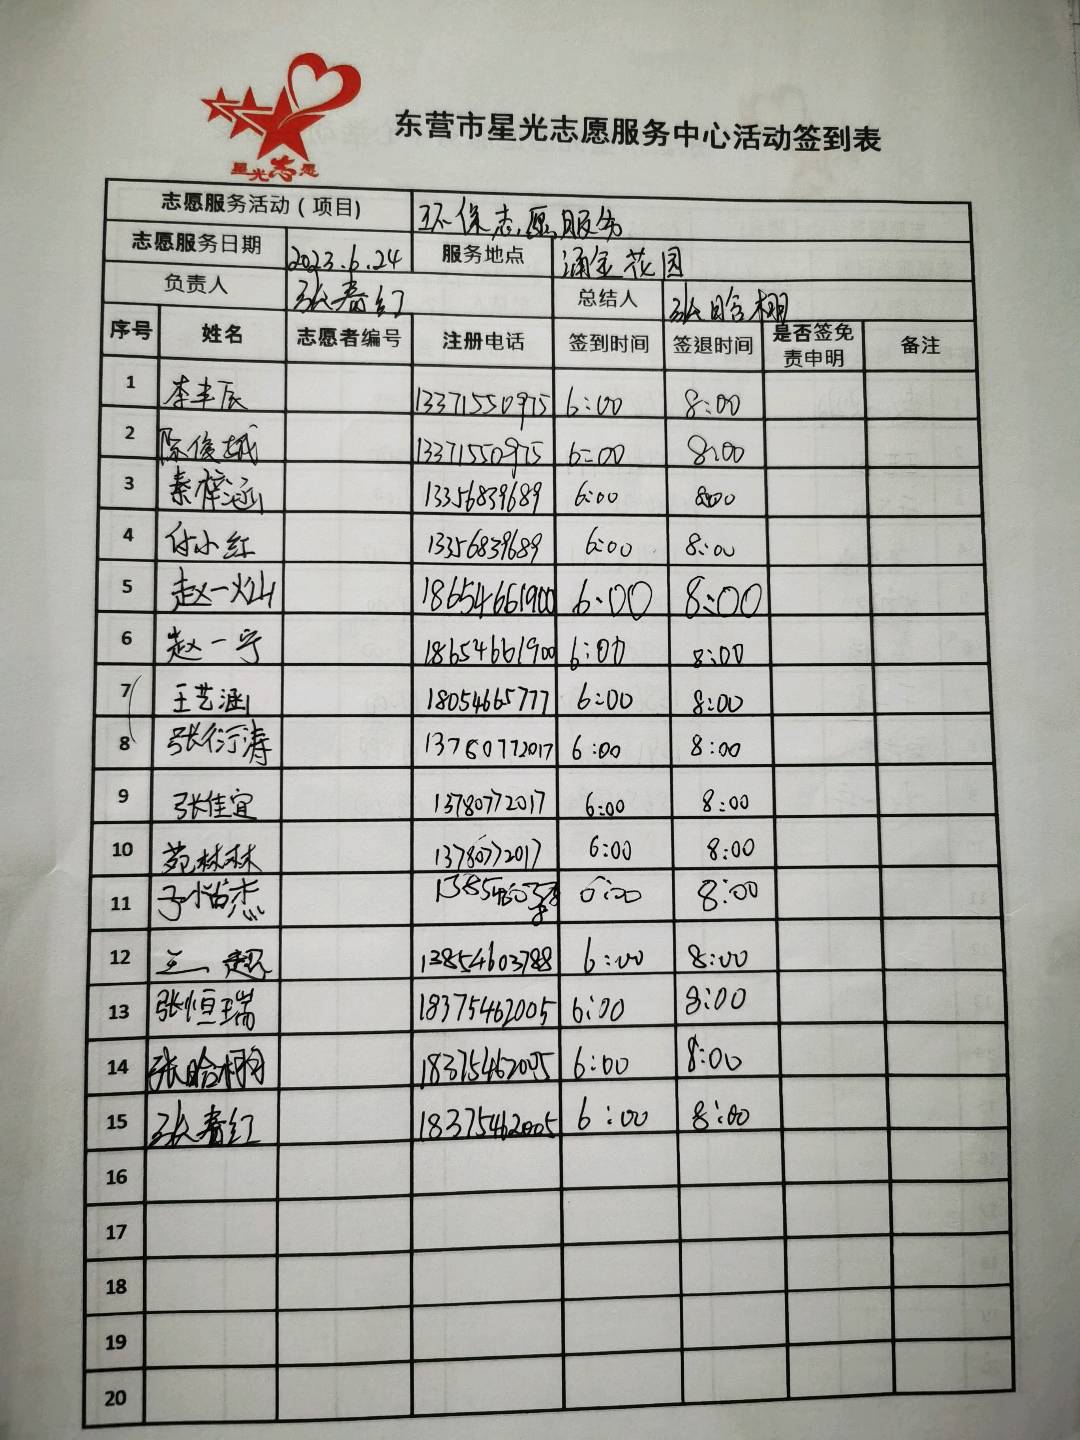 星光志愿
东营市星光志愿服务中心活动签到表
志愿服务活动（项目) 环保志愿服务
志愿服务日期 2023.6.24 服务地点 涌金花园
负责人 张春红 总结人 张晗栩
序号 姓名 志愿者编号 注册电话 签到时间 签退时间 是否签免责申明 备注
1 李丰辰 13371550975 6:00 8:00
2 陈俊城 13371550975 6:00 8:00
3 秦梓涵 13356839689 6:00 8:00
4 付小红 13356839689 6:00 8:00
5 赵一灿 18654661900 6:00 8:00
6 赵一宁 18654661900 6:00 8:00
7 王艺涵 18054665777 6:00 8:00
8 张衍涛 13780772017 6:00 8:00
9 张佳宜 13780772017 6:00 8:00
10 苑林林 13780772017 6:00 8:00
11 6:00 8:00
12 13854603788 6:00 8:00
13 张恒瑞 18375462005 6:00 8:00
14 张晗栩 18375462005 6:00 8:00
15 张春红 18375462005 6:00 8:00
16
17
18
19
20